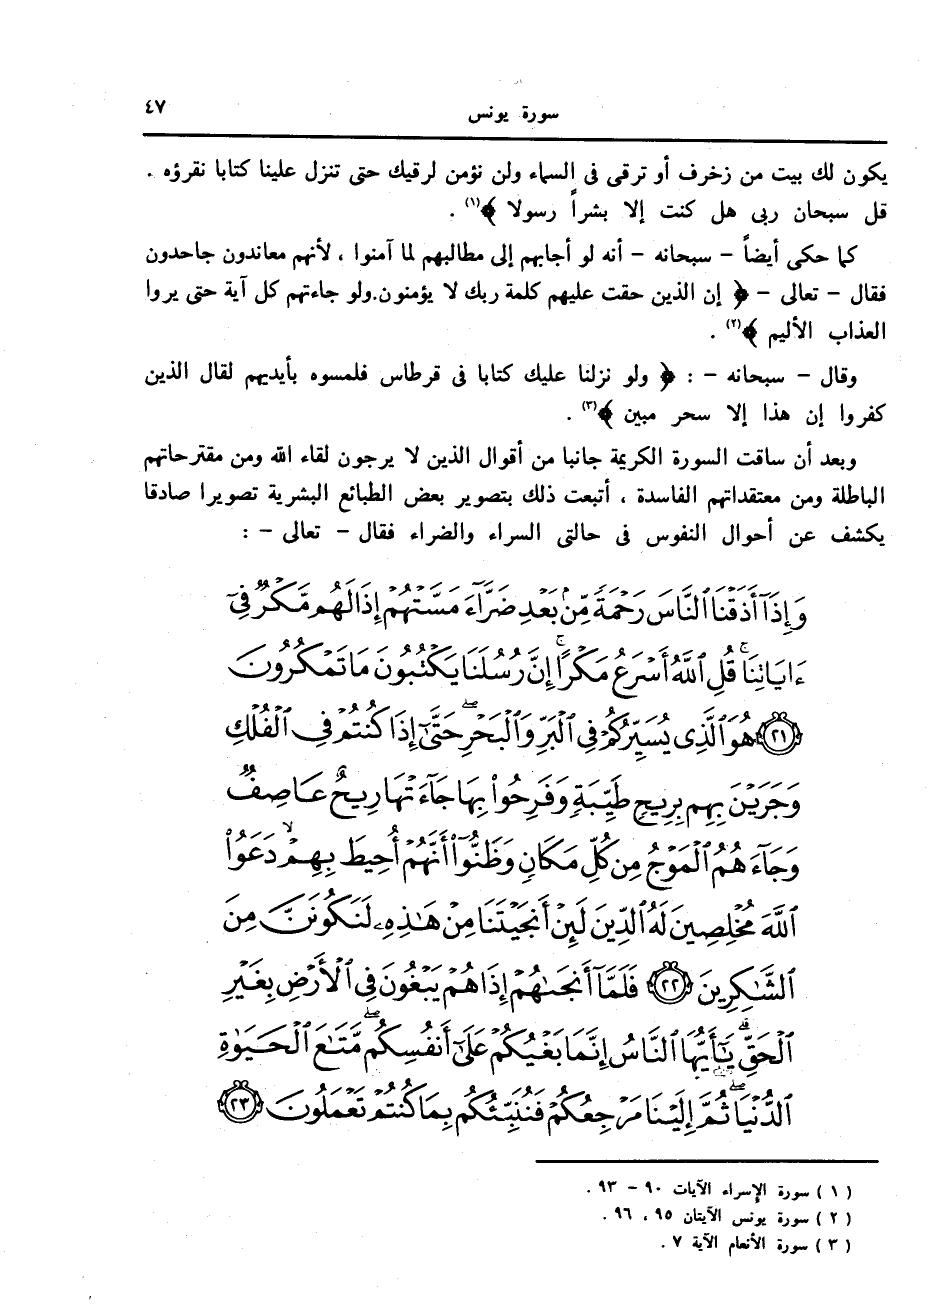 سورة يونس ٤٧
يكون لك بيت من زخرف أو ترقى فى السماء ولن نؤمن لرقيك حتى تنزل علينا كتابا نقرؤه .
قل سبحان ربى هل كنت إلا بشراً رسولا ﴾(١) .
كما حكى أيضاً – سبحانه – أنه لو أجابهم إلى مطالبهم لما آمنوا ، لأنهم معاندون جاحدون
فقال – تعالى – ﴿ إن الذين حقت عليهم كلمة ربك لا يؤمنون.ولو جاءتهم كل آية حتى يروا
العذاب الأليم ﴾(٢) .
وقال – سبحانه – : ﴿ ولو نزلنا عليك كتابا فى قرطاس فلمسوه بأيديهم لقال الذين
كفروا إن هذا إلا سحر مبين ﴾(٣) .
وبعد أن ساقت السورة الكريمة جانبا من أقوال الذين لا يرجون لقاء الله ومن مقترحاتهم
الباطلة ومن معتقداتهم الفاسدة ، أتبعت ذلك بتصوير بعض الطبائع البشرية تصويرا صادقا
يكشف عن أحوال النفوس فى حالتى السراء والضراء فقال – تعالى – :
وَإِذَآ أَذَقْنَا ٱلنَّاسَ رَحْمَةً مِّنۢ بَعْدِ ضَرَّآءَ مَسَّتْهُمْ إِذَا لَهُم مَّكْرٌ فِىٓ
ءَايَاتِنَا ۚ قُلِ ٱللَّهُ أَسْرَعُ مَكْرًا ۚ إِنَّ رُسُلَنَا يَكْتُبُونَ مَا تَمْكُرُونَ
﴿٢١﴾ هُوَ ٱلَّذِى يُسَيِّرُكُمْ فِى ٱلْبَرِّ وَٱلْبَحْرِ ۖ حَتَّىٰٓ إِذَا كُنتُمْ فِى ٱلْفُلْكِ
وَجَرَيْنَ بِهِم بِرِيحٍ طَيِّبَةٍ وَفَرِحُوا۟ بِهَا جَآءَتْهَا رِيحٌ عَاصِفٌ
وَجَآءَهُمُ ٱلْمَوْجُ مِن كُلِّ مَكَانٍ وَظَنُّوٓا۟ أَنَّهُمْ أُحِيطَ بِهِمْ ۙ دَعَوُا۟
ٱللَّهَ مُخْلِصِينَ لَهُ ٱلدِّينَ لَئِنْ أَنجَيْتَنَا مِنْ هَـٰذِهِۦ لَنَكُونَنَّ مِنَ
ٱلشَّـٰكِرِينَ ﴿٢٢﴾ فَلَمَّآ أَنجَىٰهُمْ إِذَا هُمْ يَبْغُونَ فِى ٱلْأَرْضِ بِغَيْرِ
ٱلْحَقِّ ۗ يَـٰٓأَيُّهَا ٱلنَّاسُ إِنَّمَا بَغْيُكُمْ عَلَىٰٓ أَنفُسِكُم ۖ مَّتَـٰعَ ٱلْحَيَوٰةِ
ٱلدُّنْيَا ۖ ثُمَّ إِلَيْنَا مَرْجِعُكُمْ فَنُنَبِّئُكُم بِمَا كُنتُمْ تَعْمَلُونَ ﴿٢٣﴾
( ١ ) سورة الإسراء الآيات ٩٠ – ٩٣ .
( ٢ ) سورة يونس الآيتان ٩٥ ، ٩٦ .
( ٣ ) سورة الأنعام الآية ٧ .